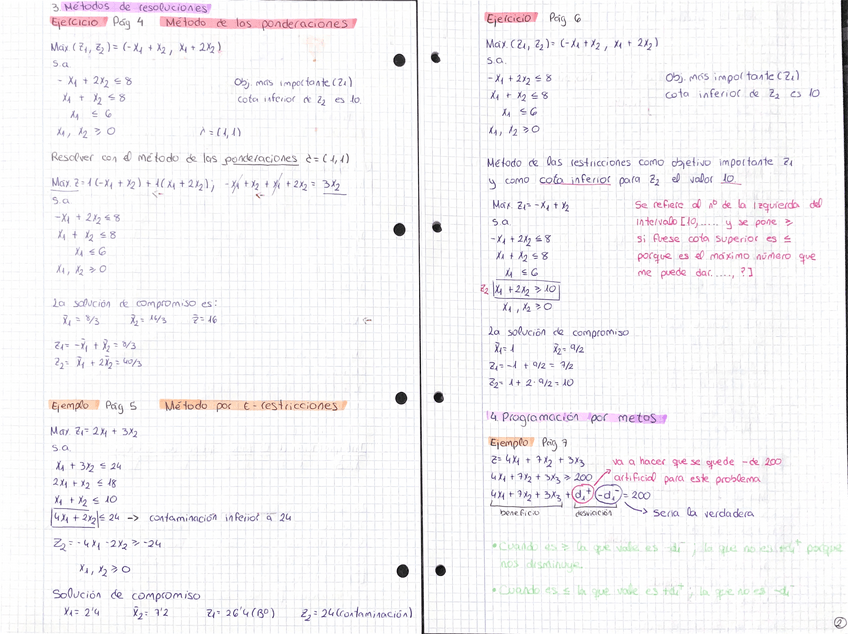 3 Métodos de resoluciones
Ejercicio Pág 4 Método de las ponderaciones
Max (Z₁, Z₂) = (-X₁ + X₂, X₁ + 2X₂)
s.a.
-X₁ + 2X₂ ≤ 8 Obj. más importante (Z₁)
X₁ + X₂ ≤ 8 cota inferior de Z₂ es 10.
X₁ ≤ 6
X₁, X₂ ≥ 0 λ = (1,1)
Resolver con el método de las ponderaciones λ = (1,1)
Max. Z = 1(-X₁ + X₂) + 1(X₁ + 2X₂); -X₁ + X₂ + X₁ + 2X₂ = 3X₂
s.a
-X₁ + 2X₂ ≤ 8
X₁ + X₂ ≤ 8
X₁ ≤ 6
X₁, X₂ ≥ 0
La solución de compromiso es:
X̄₁ = 8/3 X̄₂ = 16/3 Z̄ = 16
Z₁ = -X̄₁ + X̄₂ = 8/3
Z₂ = X̄₁ + 2X̄₂ = 40/3
Ejemplo Pág 5 Método por ε-restricciones
Max Z₁ = 2X₁ + 3X₂
s.a.
X₁ + 3X₂ ≤ 24
2X₁ + X₂ ≤ 18
X₁ + X₂ ≤ 10
4X₁ + 2X₂ ≤ 24 -> contaminación inferior a 24
Z₂ = -4X₁ - 2X₂ ≥ -24
X₁, X₂ ≥ 0
Solución de compromiso
X₁ = 2'4 X̄₂ = 7'2 Z₁ = 26'4 (Bº) Z₂ = 24 (contaminación)
Ejercicio Pág 6
Max. (Z₁, Z₂) = (-X₁ + X₂, X₁ + 2X₂)
s.a.
-X₁ + 2X₂ ≤ 8 Obj. más importante (Z₁)
X₁ + X₂ ≤ 8 cota inferior de Z₂ es 10
X₁ ≤ 6
X₁, X₂ ≥ 0
Método de las restricciones como objetivo importante Z₁
y como cota inferior para Z₂ el valor 10
Max. Z₁ = -X₁ + X₂ Se refiere al nº de la izquierda del
s.a. intervalo [10, ..... y se pone ≥
-X₁ + 2X₂ ≤ 8 si fuese cota superior es ≤
X₁ + X₂ ≤ 8 porque es el máximo número que
X₁ ≤ 6 me puede dar. ...., ?]
Z₂ X₁ + 2X₂ ≥ 10
X₁, X₂ ≥ 0
La solución de compromiso
X̄₁ = 1 X̄₂ = 9/2
Z₁ = -1 + 9/2 = 7/2
Z₂ = 1 + 2 · 9/2 = 10
4 Programación por metas
Ejemplo Pág 7
Z = 4X₁ + 7X₂ + 3X₃ va a hacer que se quede - de 200
4X₁ + 7X₂ + 3X₃ ≥ 200 artificial para este problema
4X₁ + 7X₂ + 3X₃ + d₁⁺ - d₁⁻ = 200
beneficio desviación seria la verdadera
• Cuando es ≥ la que vale es -di⁻, la que no es +di⁺ porque
nos disminuye.
• Cuando es ≤ la que vale es +di⁺, la que no es, -di⁻
2